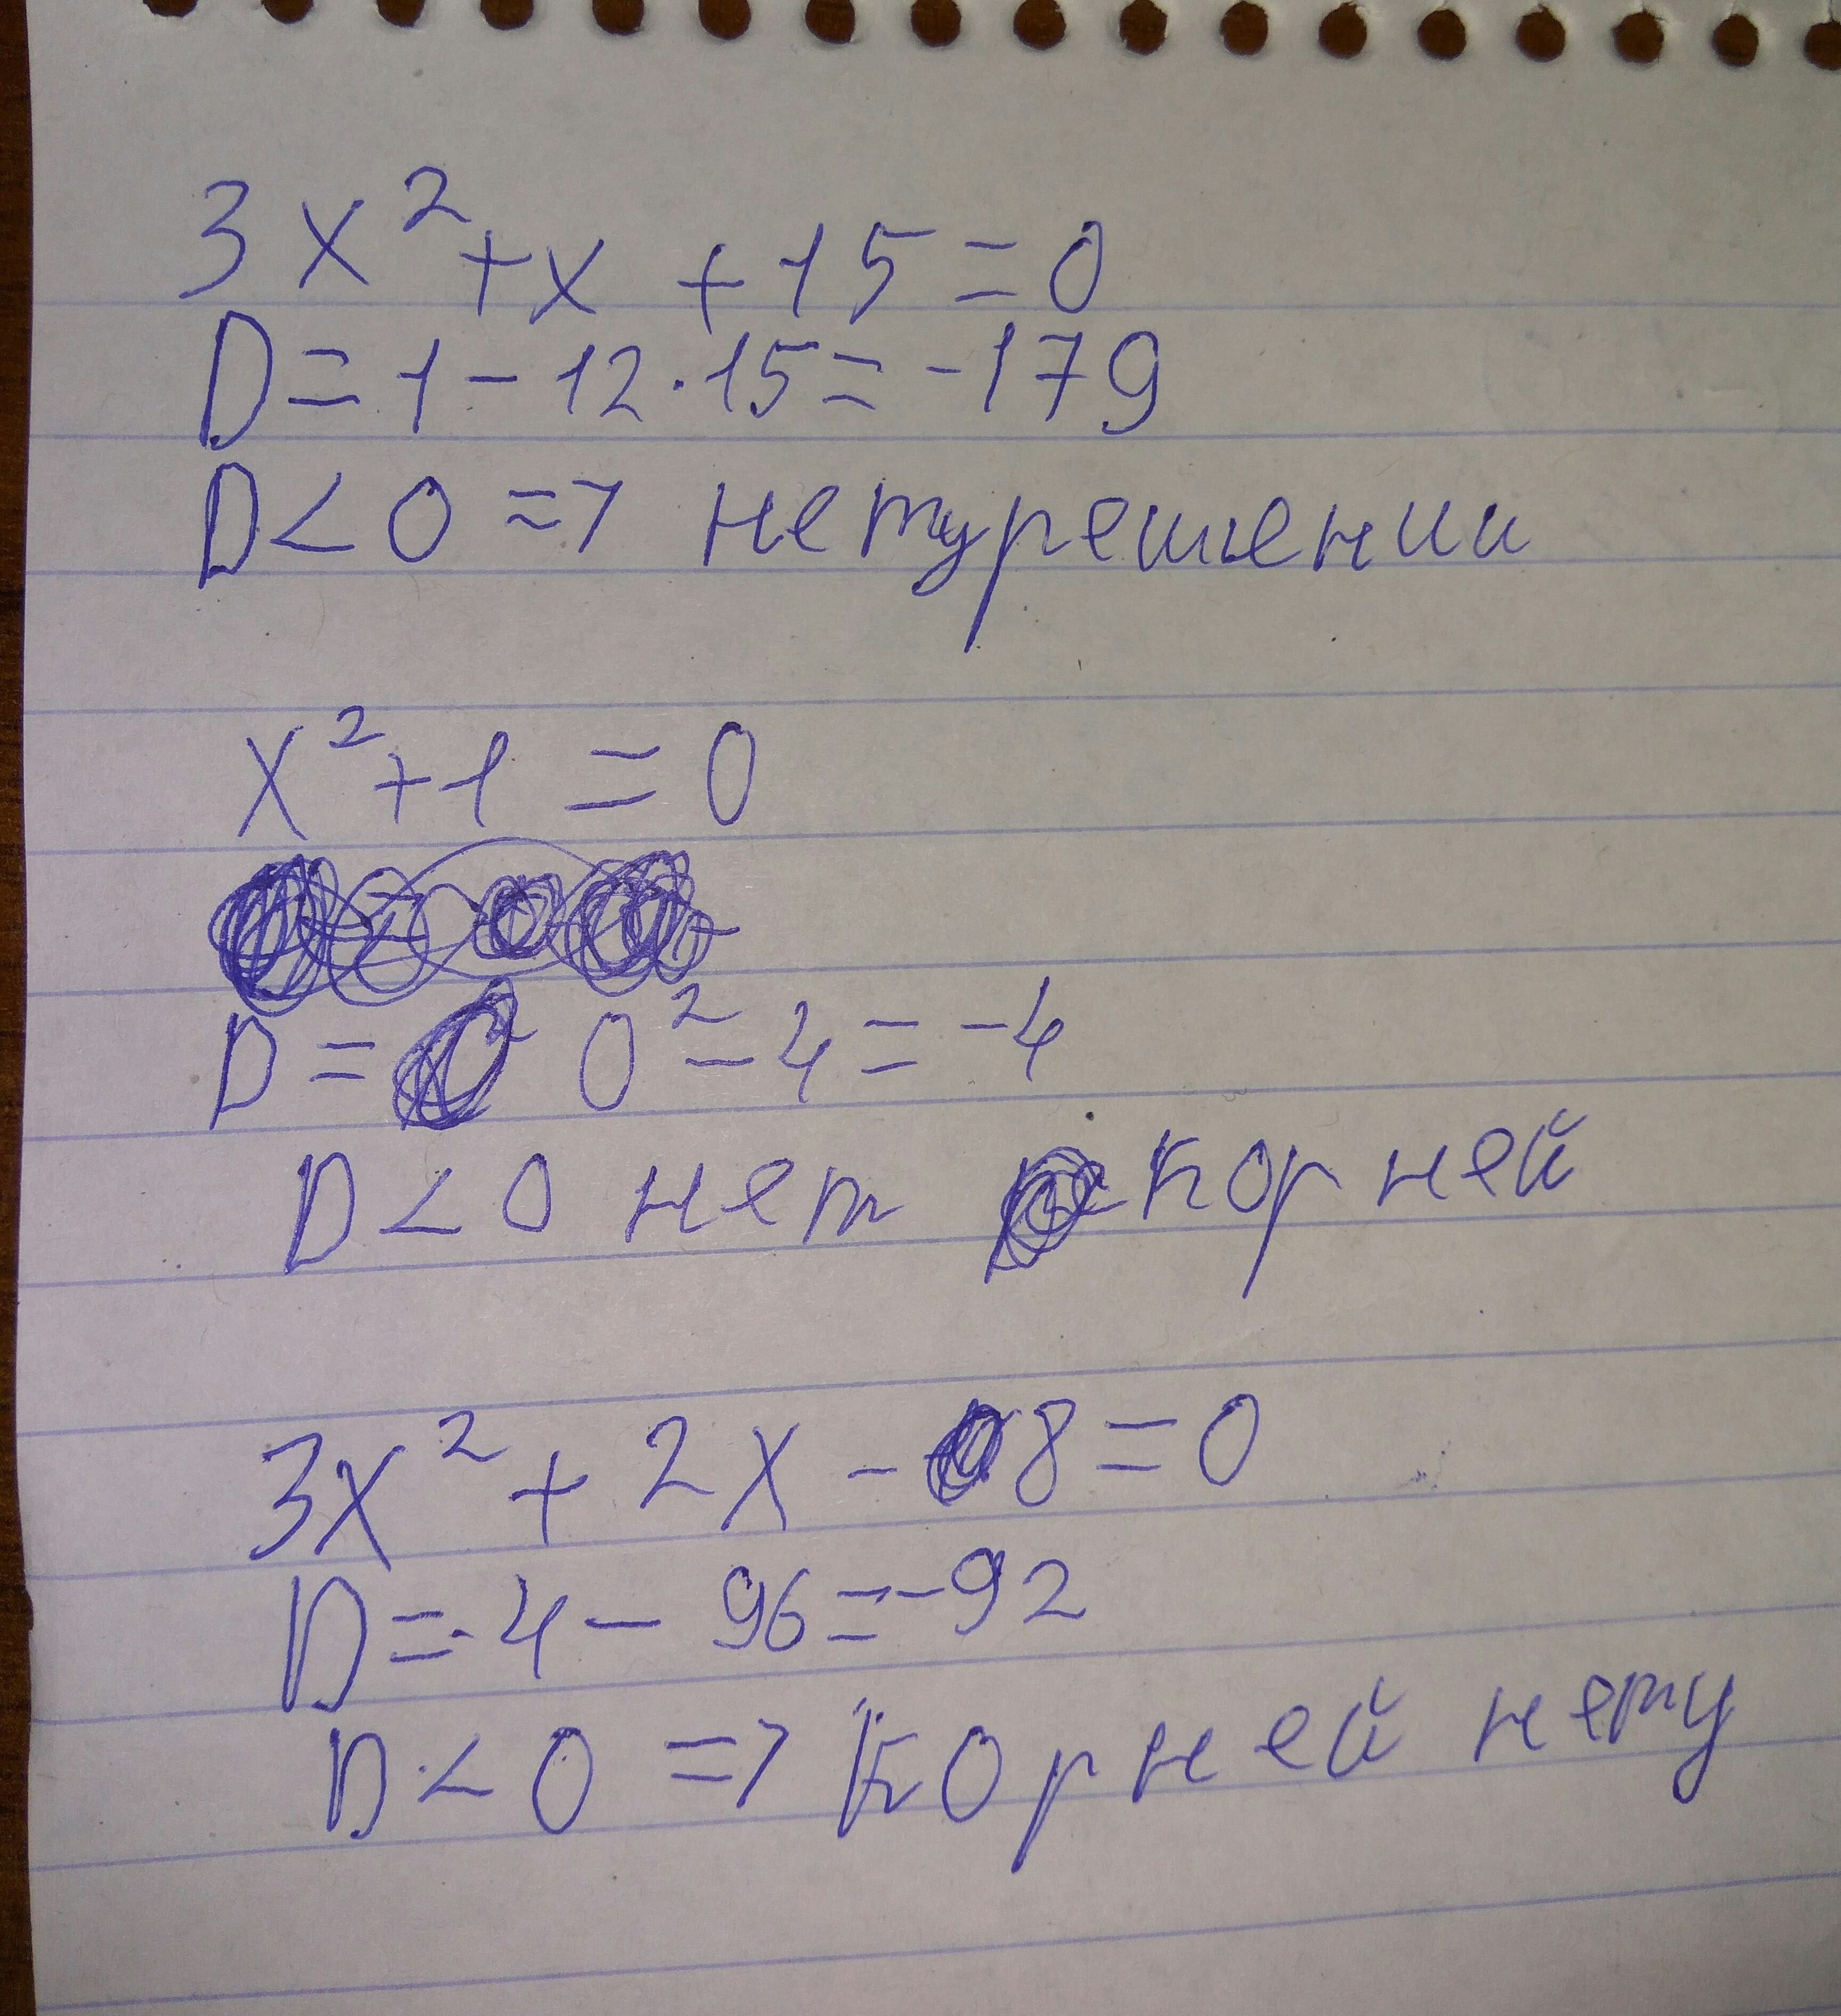 3x²+x+15=0
D=1-12·15=-179
D<0=> нету решении
x²+1=0
D=0²-4=-4
D<0 нет корней
3x²+2x-8=0
D=-4-96=-92
D<0=> корней нету